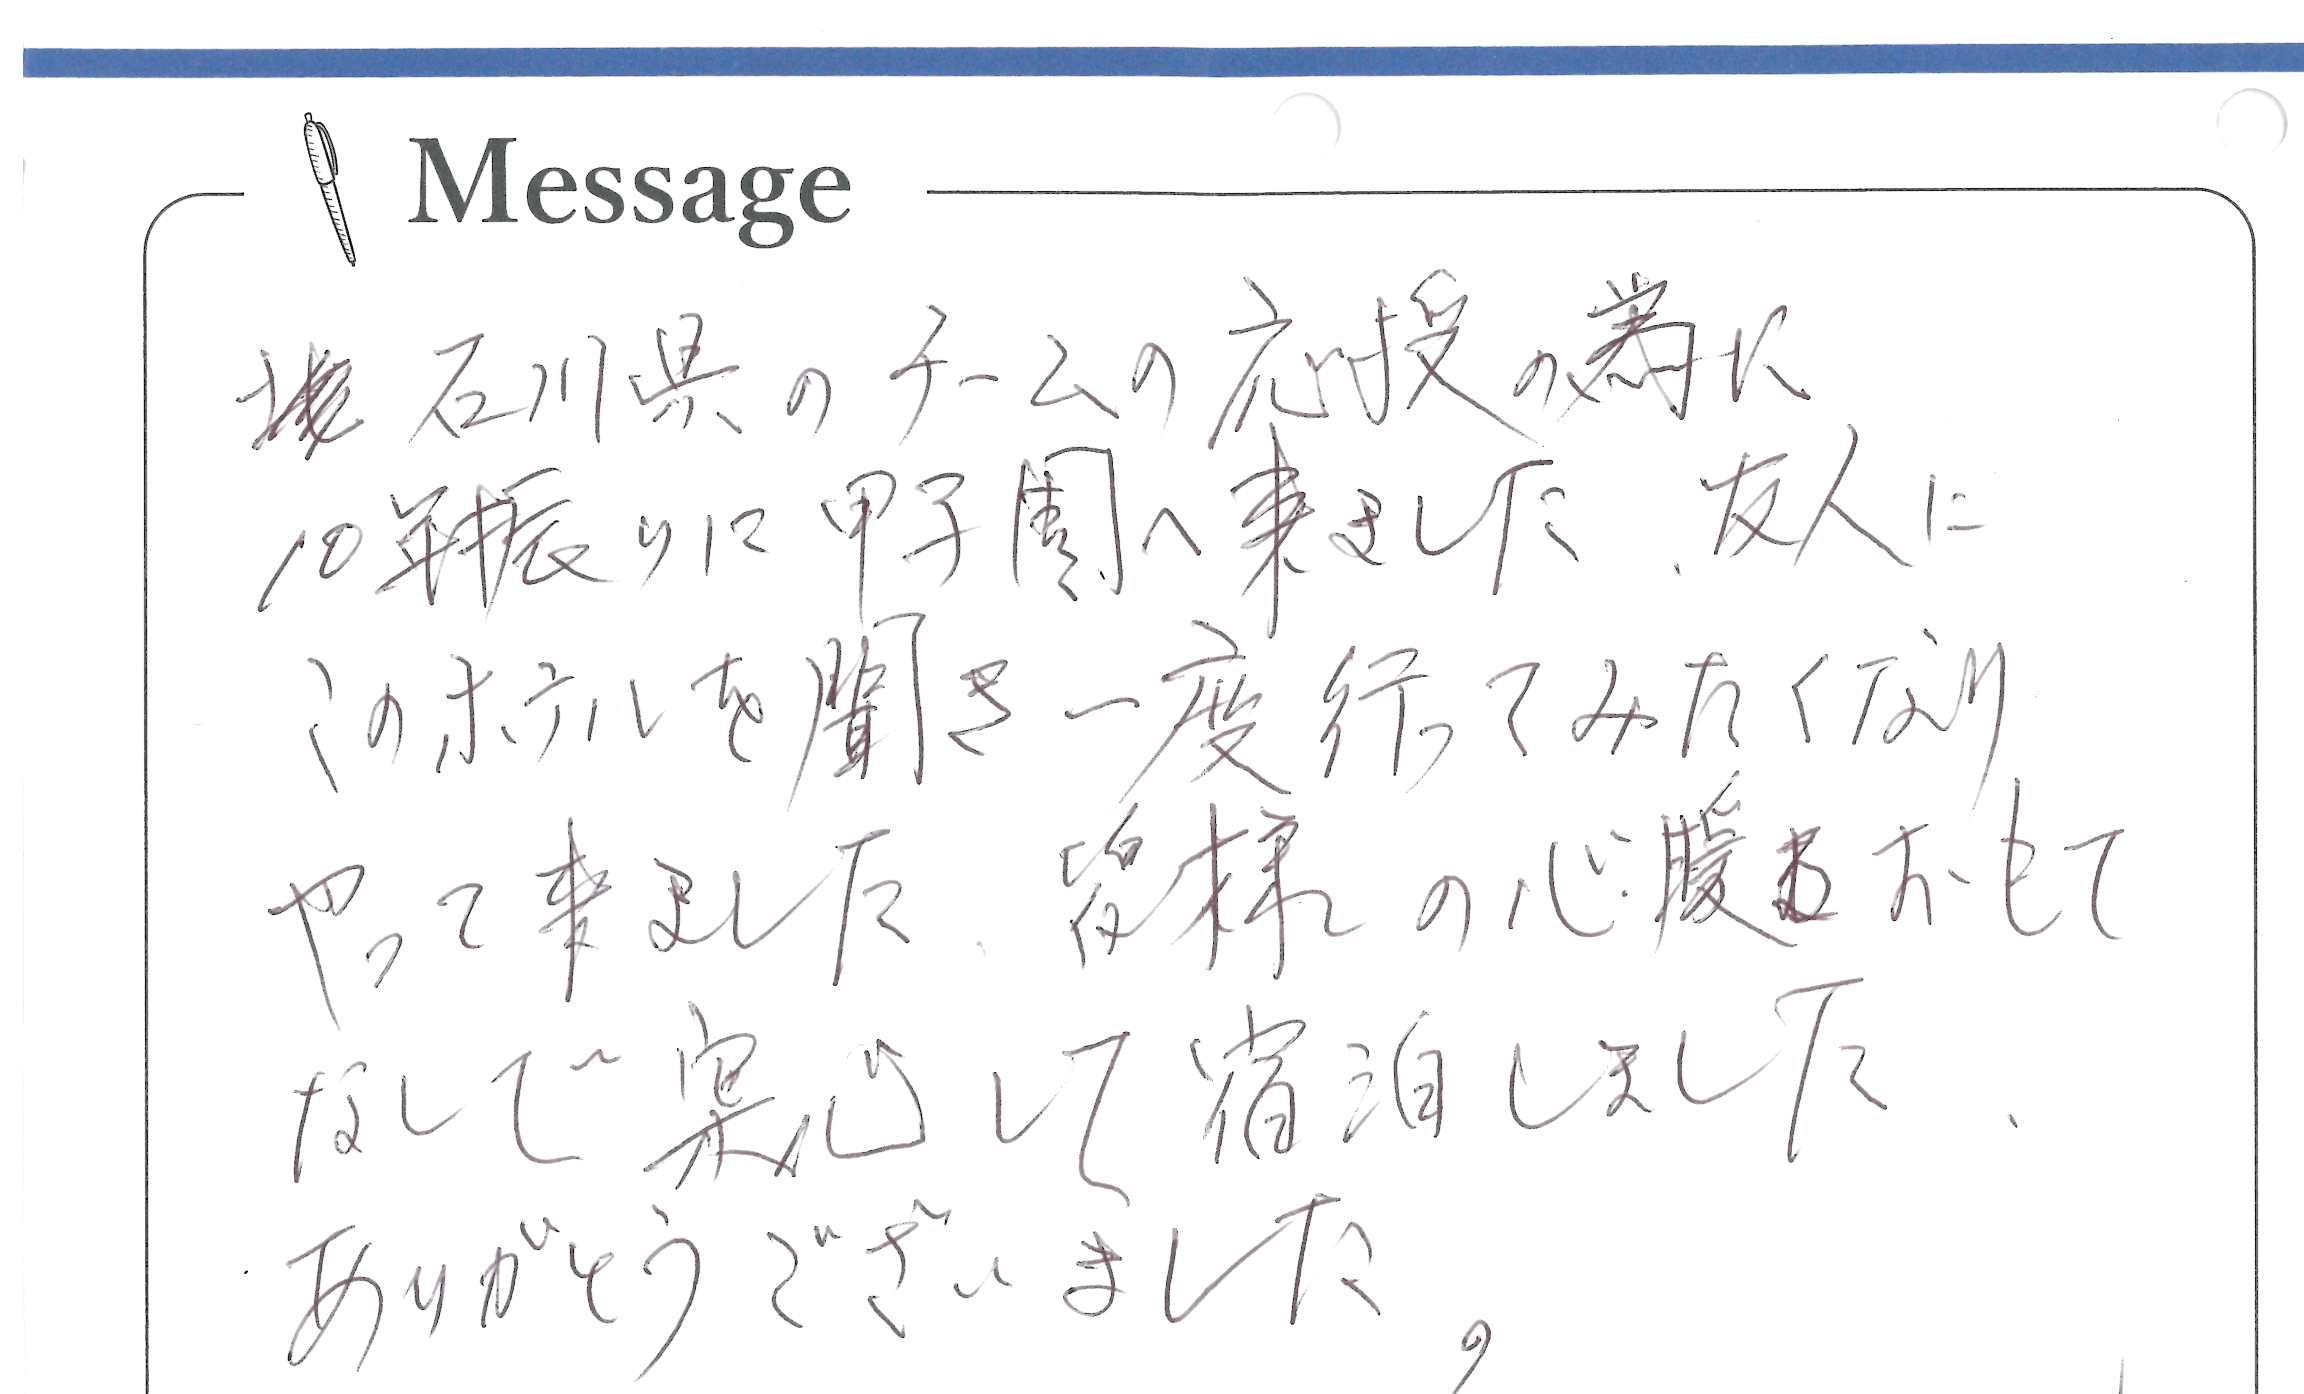 Message
石川県のチームの応援の為に
10年振りに甲子園へ来ました、友人に
このホテルを聞き一度行ってみたくなり
やって来ました、皆様の心暖まるおもて
なしで安心して宿泊しました、
ありがとうございました。